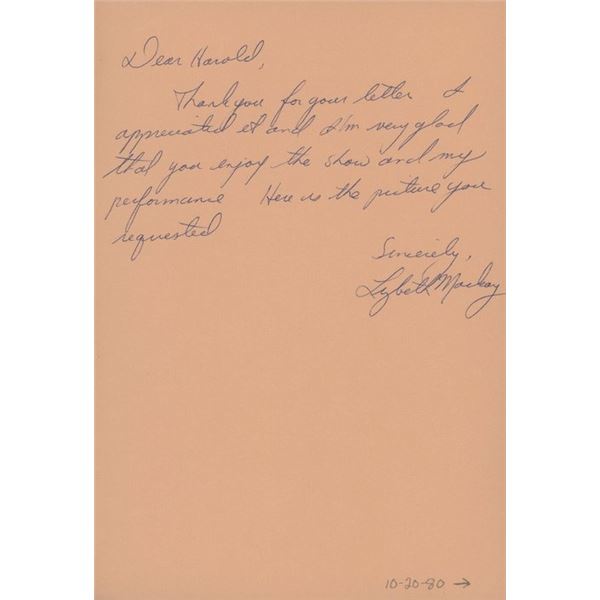 Dear Harold,
Thank you for your letter I
appreciated it and I'm very glad
that you enjoy the show and my
performance Here is the picture you
requested
Sincerely,
Lizbeth Mackay
10-20-80 →